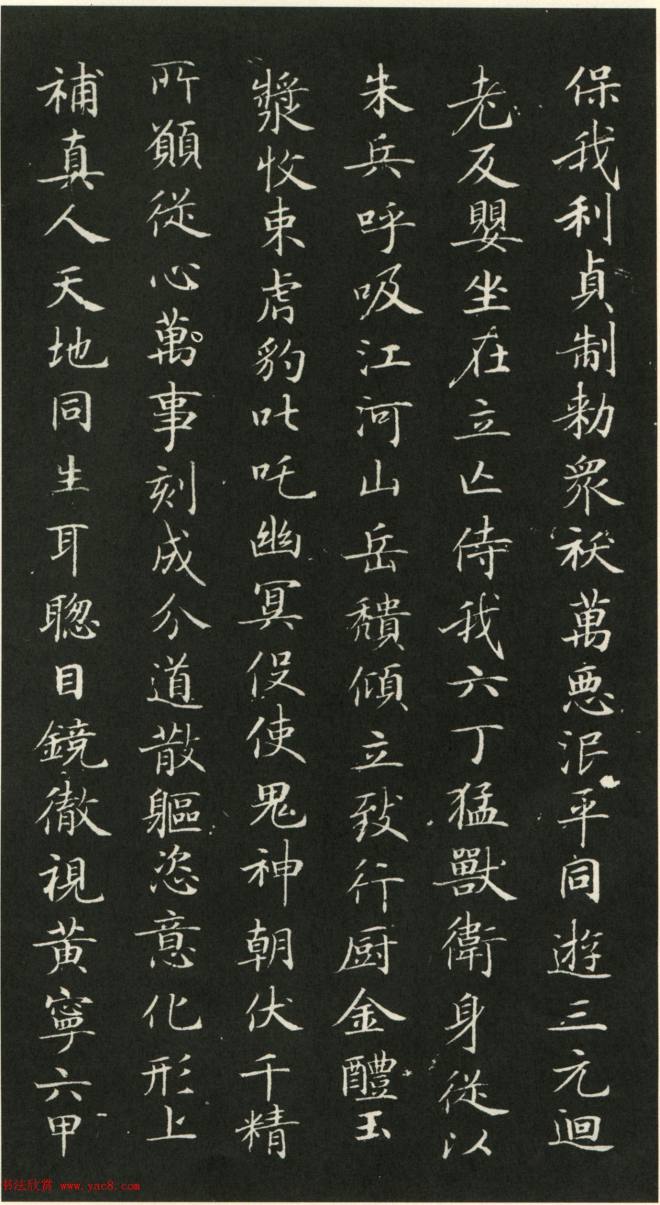 保我利貞制勑衆祅萬惡泯平同遊三元迴
老反嬰坐在立亡侍我六丁猛獸衛身従以
朱兵呼吸江河山岳穨傾立致行厨金醴玉
漿收束虎豹叱吒幽冥役使鬼神朝伏千精
所願従心萬事剋成分道散軀恣意化形上
補真人天地同生耳聦目鏡徹視黃寧六甲
书法欣赏 www.yac8.com